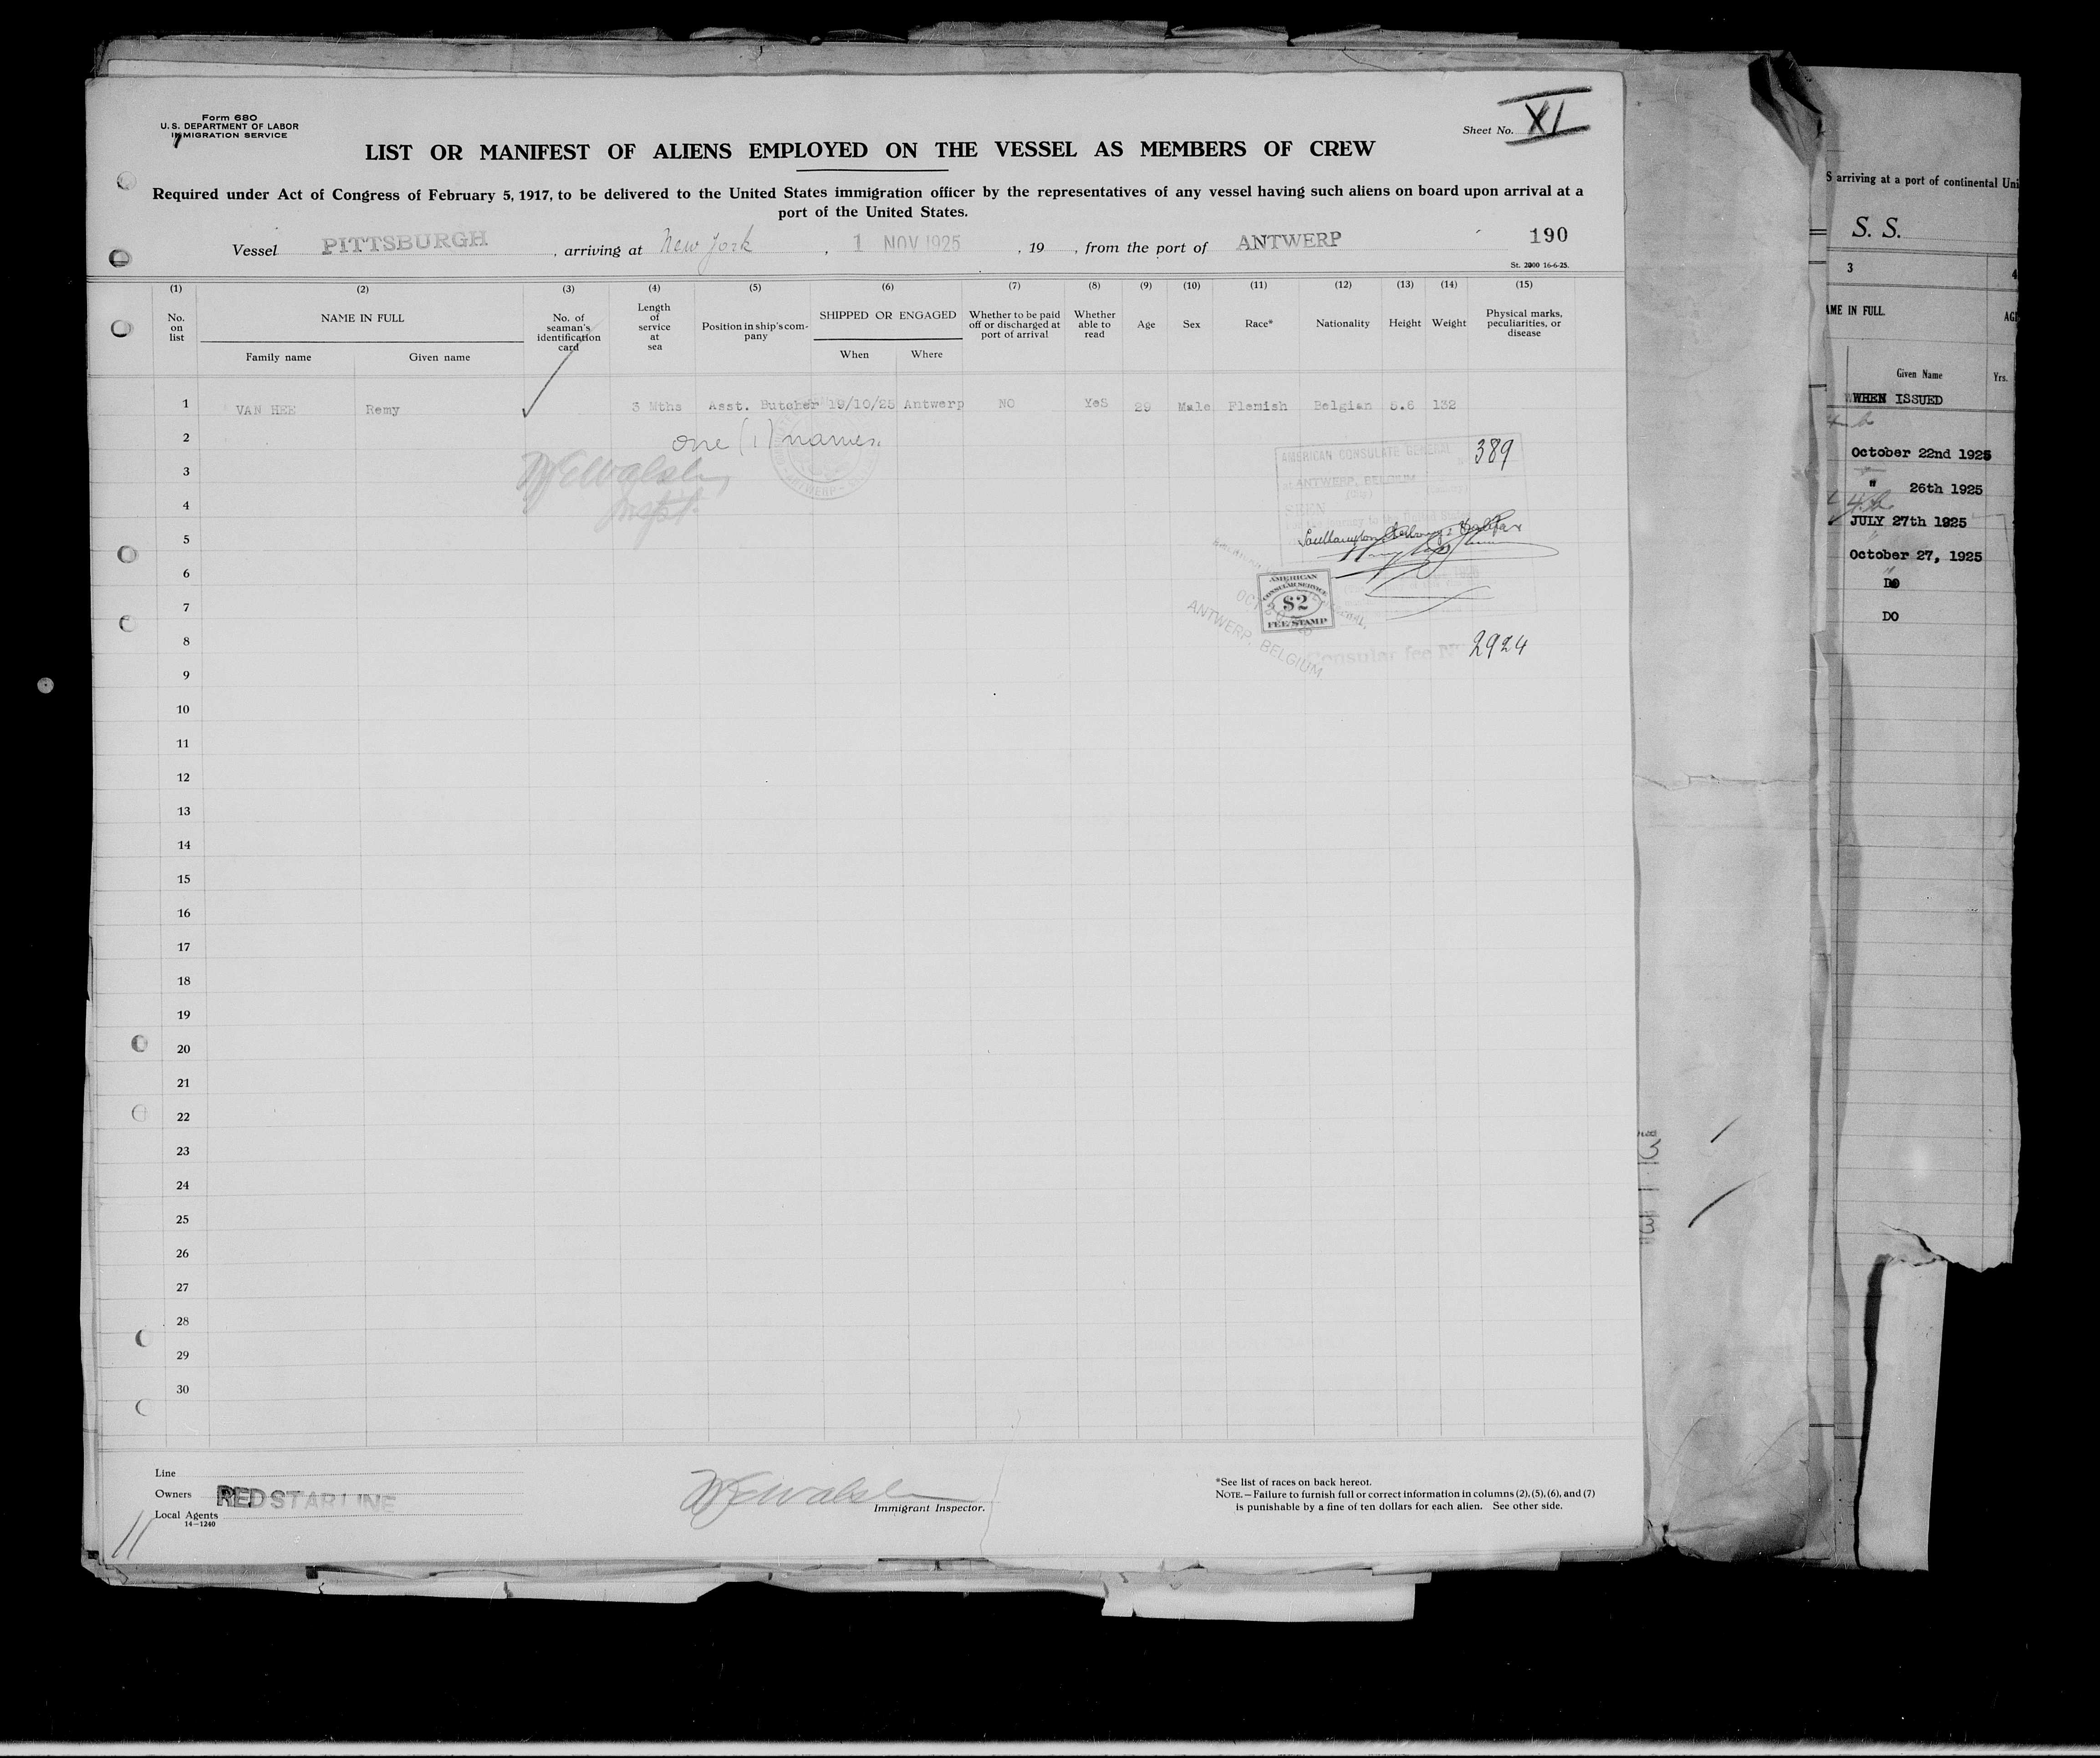 Form 680
U. S. DEPARTMENT OF LABOR
IMMIGRATION SERVICE
Sheet No. XI
LIST OR MANIFEST OF ALIENS EMPLOYED ON THE VESSEL AS MEMBERS OF CREW
Required under Act of Congress of February 5, 1917, to be delivered to the United States immigration officer by the representatives of any vessel having such aliens on board upon arrival at a
port of the United States.
Vessel PITTSBURGH, arriving at New York, 1 NOV 1925, 19, from the port of ANTWERP 190
St. 2000 16-6-25.
(1) (2) (3) (4) (5) (6) (7) (8) (9) (10) (11) (12) (13) (14) (15)
No. on list
NAME IN FULL
Family name Given name
No. of seaman's identification card
Length of service at sea
Position in ship's company
SHIPPED OR ENGAGED
When Where
Whether to be paid off or discharged at port of arrival
Whether able to read
Age
Sex
Race*
Nationality
Height
Weight
Physical marks, peculiarities, or disease
1 VAN HEE Remy 3 Mths Asst. Butcher 19/10/25 Antwerp NO YeS 29 Male Flemish Belgian 5.6 132
2 one (1) names.
AMERICAN CONSULATE GENERAL 389
3 W E Walsh
ANTWERP, BELGIUM
4 Inspt.
SEEN
5
6
AMERICAN
CONSULAR SERVICE
$2
FEE STAMP
7
ANTWERP, BELGIUM
8
Consular fee No 2924
9
10
11
12
13
14
15
16
17
18
19
20
21
22
23
24
25
26
27
28
29
30
Line
Owners RED STAR LINE
Local Agents
14—1240
11
W E Walsh
Immigrant Inspector.
*See list of races on back hereof.
NOTE.—Failure to furnish full or correct information in columns (2), (5), (6), and (7)
is punishable by a fine of ten dollars for each alien. See other side.
S arriving at a port of continental Uni
S. S.
3 4
AME IN FULL. AGE
Given Name Yrs.
WHEN ISSUED
October 22nd 1925
" 26th 1925
JULY 27th 1925
October 27, 1925
DO
DO
3
3